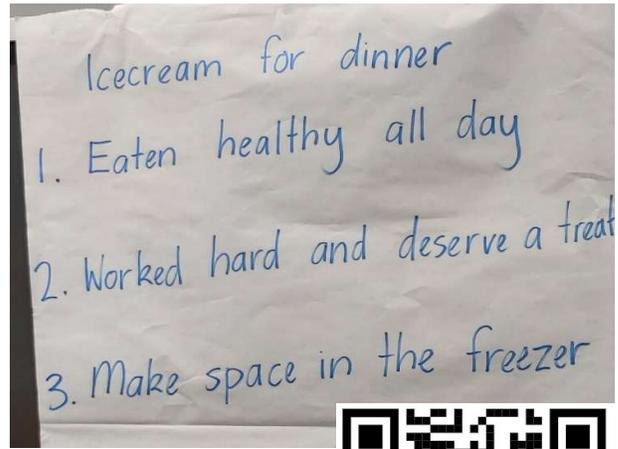 Icecream for dinner
1. Eaten healthy all day
2. Worked hard and deserve a treat
3. Make space in the freezer